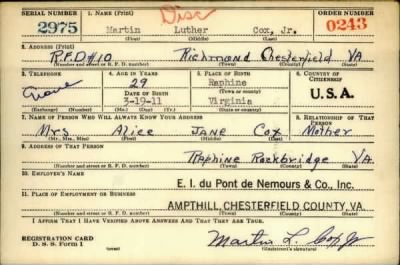 SERIAL NUMBER 1. NAME (Print) Disc ORDER NUMBER
2975 Martin Luther Cox, Jr. 0243
(First) (Middle) (Last)
2. ADDRESS (Print)
R.F.D #10 Richmond Chesterfield VA
(Number and street or R. F. D. number) (Town) (County) (State)
3. TELEPHONE 4. AGE IN YEARS 5. PLACE OF BIRTH 6. COUNTRY OF CITIZENSHIP
29 Raphine
DATE OF BIRTH (Town or county)
3-19-11 Virginia U.S.A.
(Exchange) (Number) (Mo.) (Day) (Yr.) (State or country)
7. NAME OF PERSON WHO WILL ALWAYS KNOW YOUR ADDRESS 8. RELATIONSHIP OF THAT PERSON
Mrs Alice JANE Cox Mother
(Mr., Mrs., Miss) (First) (Middle) (Last)
9. ADDRESS OF THAT PERSON
Raphine Rockbridge VA
(Number and street or R. F. D. number) (Town) (County) (State)
10. EMPLOYER'S NAME
E. I. du Pont de Nemours & Co., Inc.
11. PLACE OF EMPLOYMENT OR BUSINESS
AMPTHILL, CHESTERFIELD COUNTY, VA.
(Number and street or R. F. D. number) (Town) (County) (State)
I AFFIRM THAT I HAVE VERIFIED ABOVE ANSWERS AND THAT THEY ARE TRUE.
REGISTRATION CARD
D. S. S. Form 1 Martin L. Cox Jr
(Registrant's signature)